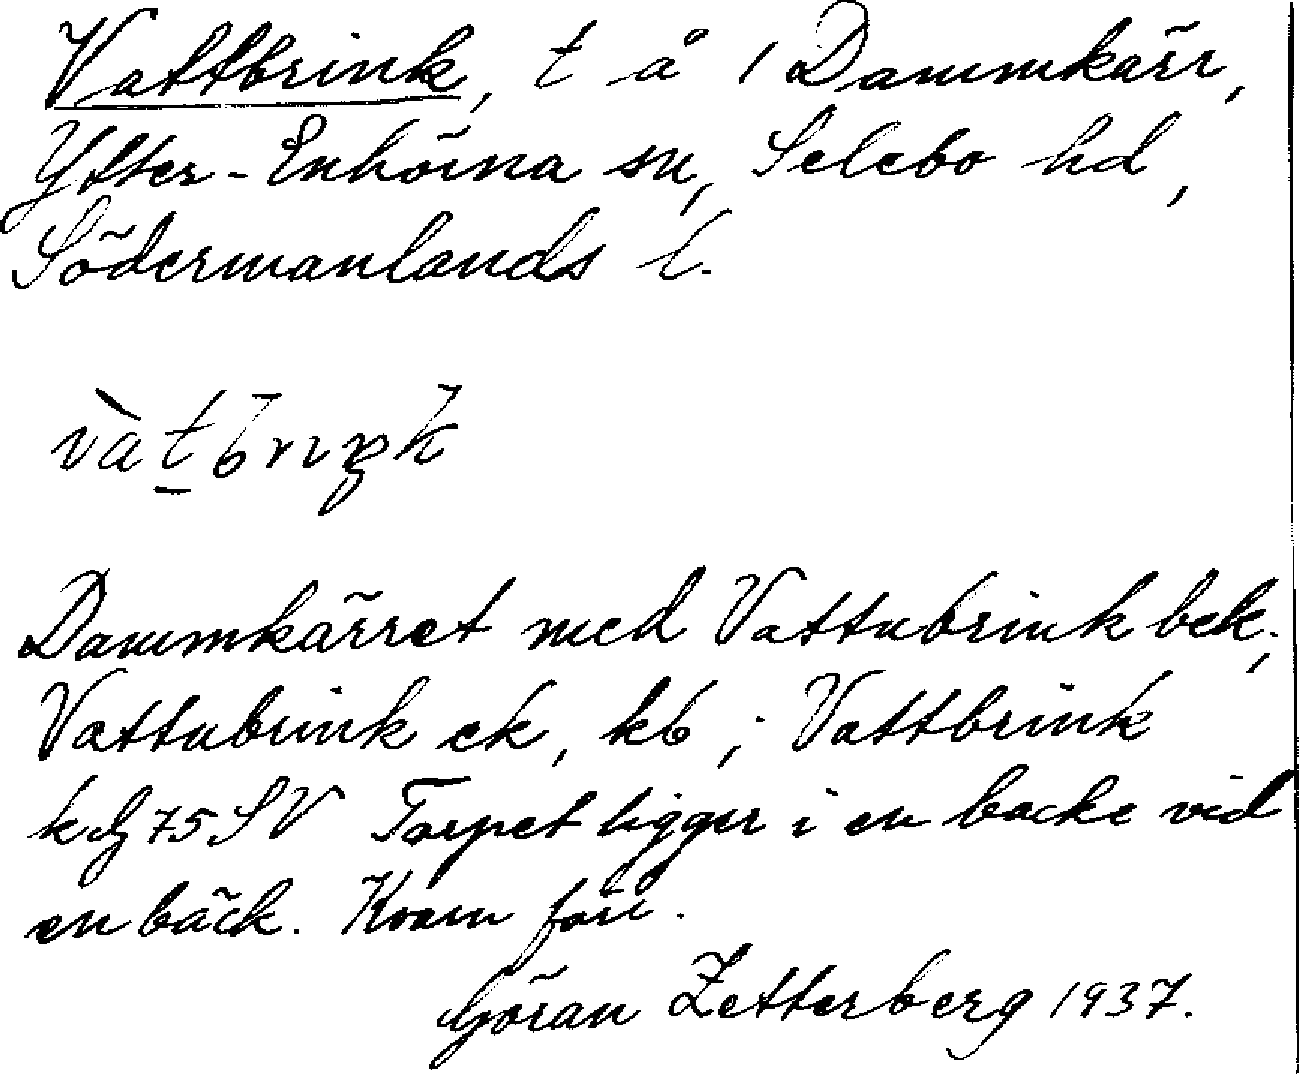 Vattbrink, t å 1 Dammkärr,
Ytter-Enhörna sn, Selebo hd,
Södermanlands l.
vàt̲briŋk
Dammkärret med Vattubrink bek;
Vattubrink ek, kb; Vattbrink
75 SV Torpet ligger i en backe vid
en bäck. Kvarn förr.
Göran Zetterberg 1937.